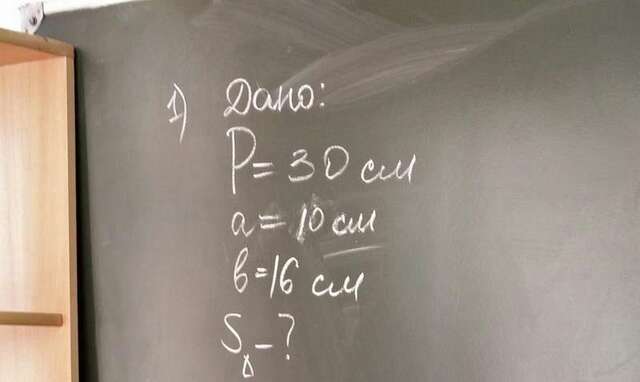 1) Дано:
P = 30 см
a = 10 см
в = 16 см
S△ - ?